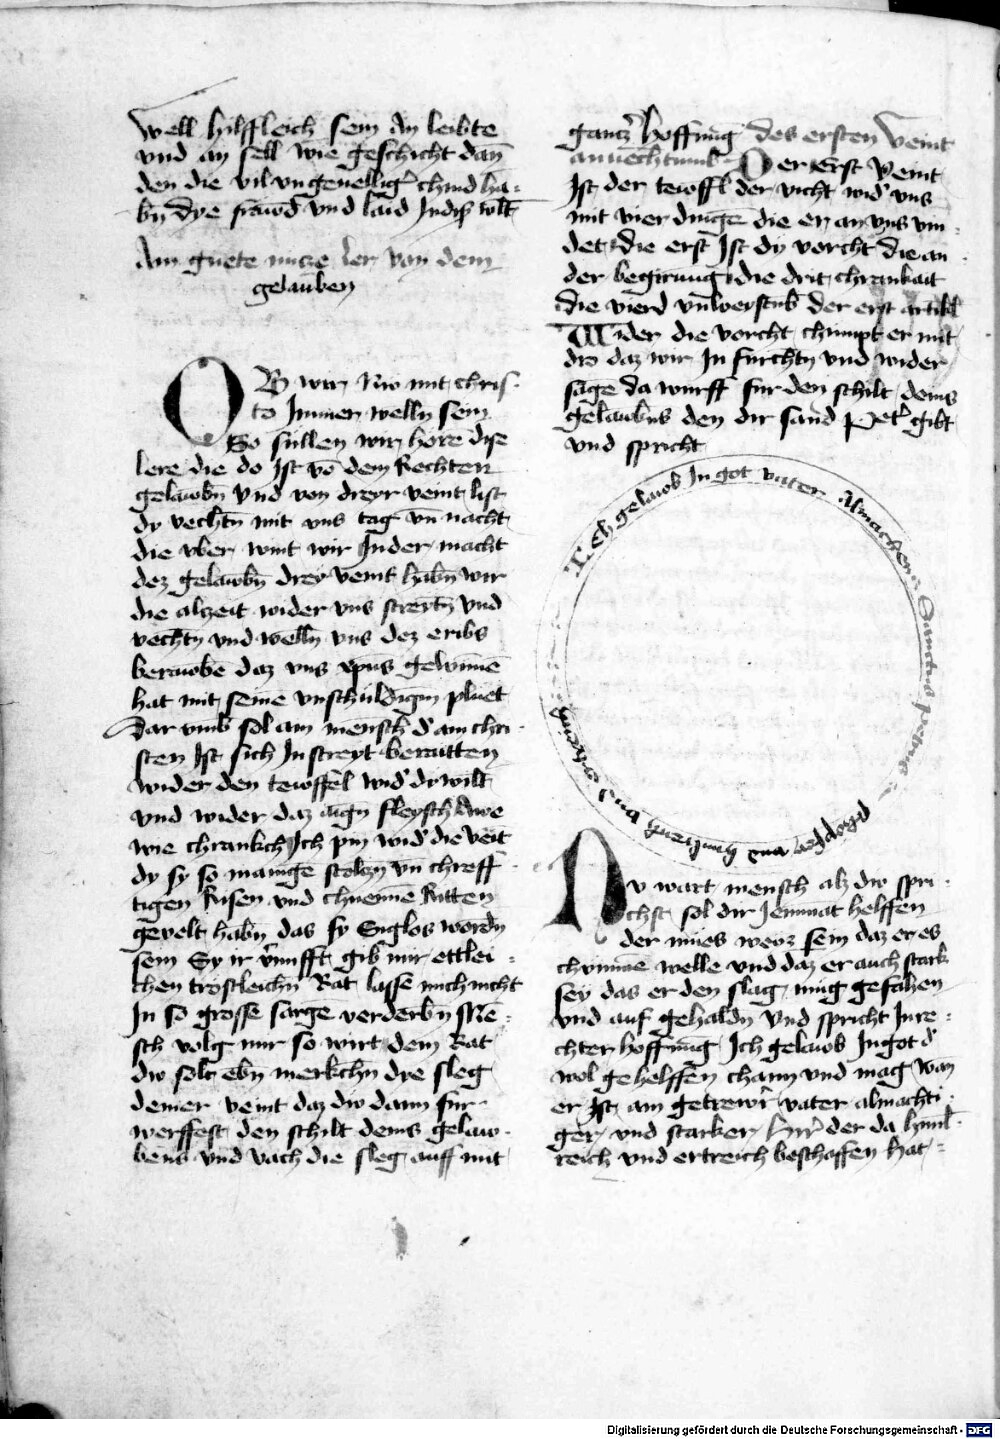 well hilffleich sein An leibte
vnd an sell wie geschicht dan̄
den die vil vngeuelligˀ chind ha-
bn̄ dye frawd vnd laid Indˀ wlt̄
Ain guete nucze ler von dem
gelauben
OB wir Nw mit chris-
to Immer welln sein
So süllen wir hore dise
lere die do Ist vō dem Rechten
gelawbn̄ vnd von dreyr veint list
dy vechtn̄ mit vns tag vn̄ nacht
die vber wint wir Inder macht
dez gelawbn̄ drey veint habn̄ wir
die alzeit wider vns streytn̄ vnd
vechtn̄ vnd welln̄ vns dez eribs
berawbē daz vns xpūs gewinnē
hat mit seinē vnschuldigm pluet
Dar vmb sol ain mensch dˀ ain chri-
sten Ist sich In streyt beraitten
wider den tewffel widˀ dy wilt̄
vnd wider daz aign̄ fleysch Awe
wie chrankch Ich pin widˀ die veīt
dy sy so manigē stolczn̄ vn̄ chreff-
tigen Risen vnd chuennē Ritten
geuelt habn̄ das sy Siglos wordn̄
sein Sy ir vˀnufft gib mir ettlei-
chen trostleichn̄ Rat lasse mich nicht
In so grosse sargē verderbn̄ Mē-
sch volg mir so wirt dein Rat
dw solt ebn̄ merkchn̄ dye sleg
deiner veint daz dw dann fur
werffest den schilt deins gelaw-
bens vnd vach die sleg auff mit
gancz̄ˀ hoffnūg des ersten veint
anuechtumb Der Erst Veint
Ist der tewffl der vicht widˀ vns
mit vier dingē die er an vns vin-
det die erst Ist dy vorcht die an-
der begirung die drit chrankait
die vierd vnuerstn̄b der erst artikl
Wider die vorcht chümpt er mit
dro daz wir In furchtn̄ vnd wider
sagē da wurff fur den schilt deins
gelawbns den dir sand Petˀ gibt
vnd spricht
Ich gelawb In got vater Almachtn̄ Sanctus petrus
schopfer himels vnd erd
NV wart mensch alz dw spri-
chst sol dir Iemmat helffen
der mües weez sein daz er es
chünnē welle vnd daz er auch stark
sey das er den slag müg gefahen
vnd auf gehaldn̄ Vnd spricht In re-
chter hoffnūg Ich gelawb Ingot dˀ
wol gehelffen chann vnd mag wan
er Ist ain getrewˀr vater almachti-
ger vnd starker hˀr der da hym̄l-
reich vnd ertreich beschaffen hat
Digitalisierung gefördert durch die Deutsche Forschungsgemeinschaft - DFG